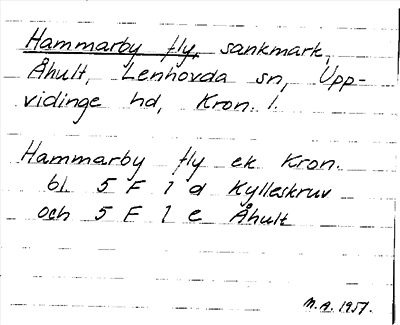 Hammarby fly, sankmark,
Åhult, Lenhovda sn, Upp-
vidinge hd, Kron. l.
Hammarby fly ek Kron.
bl 5 F 1 d Kylleskruv
och 5 F 1 e Åhult
M.A. 1957.